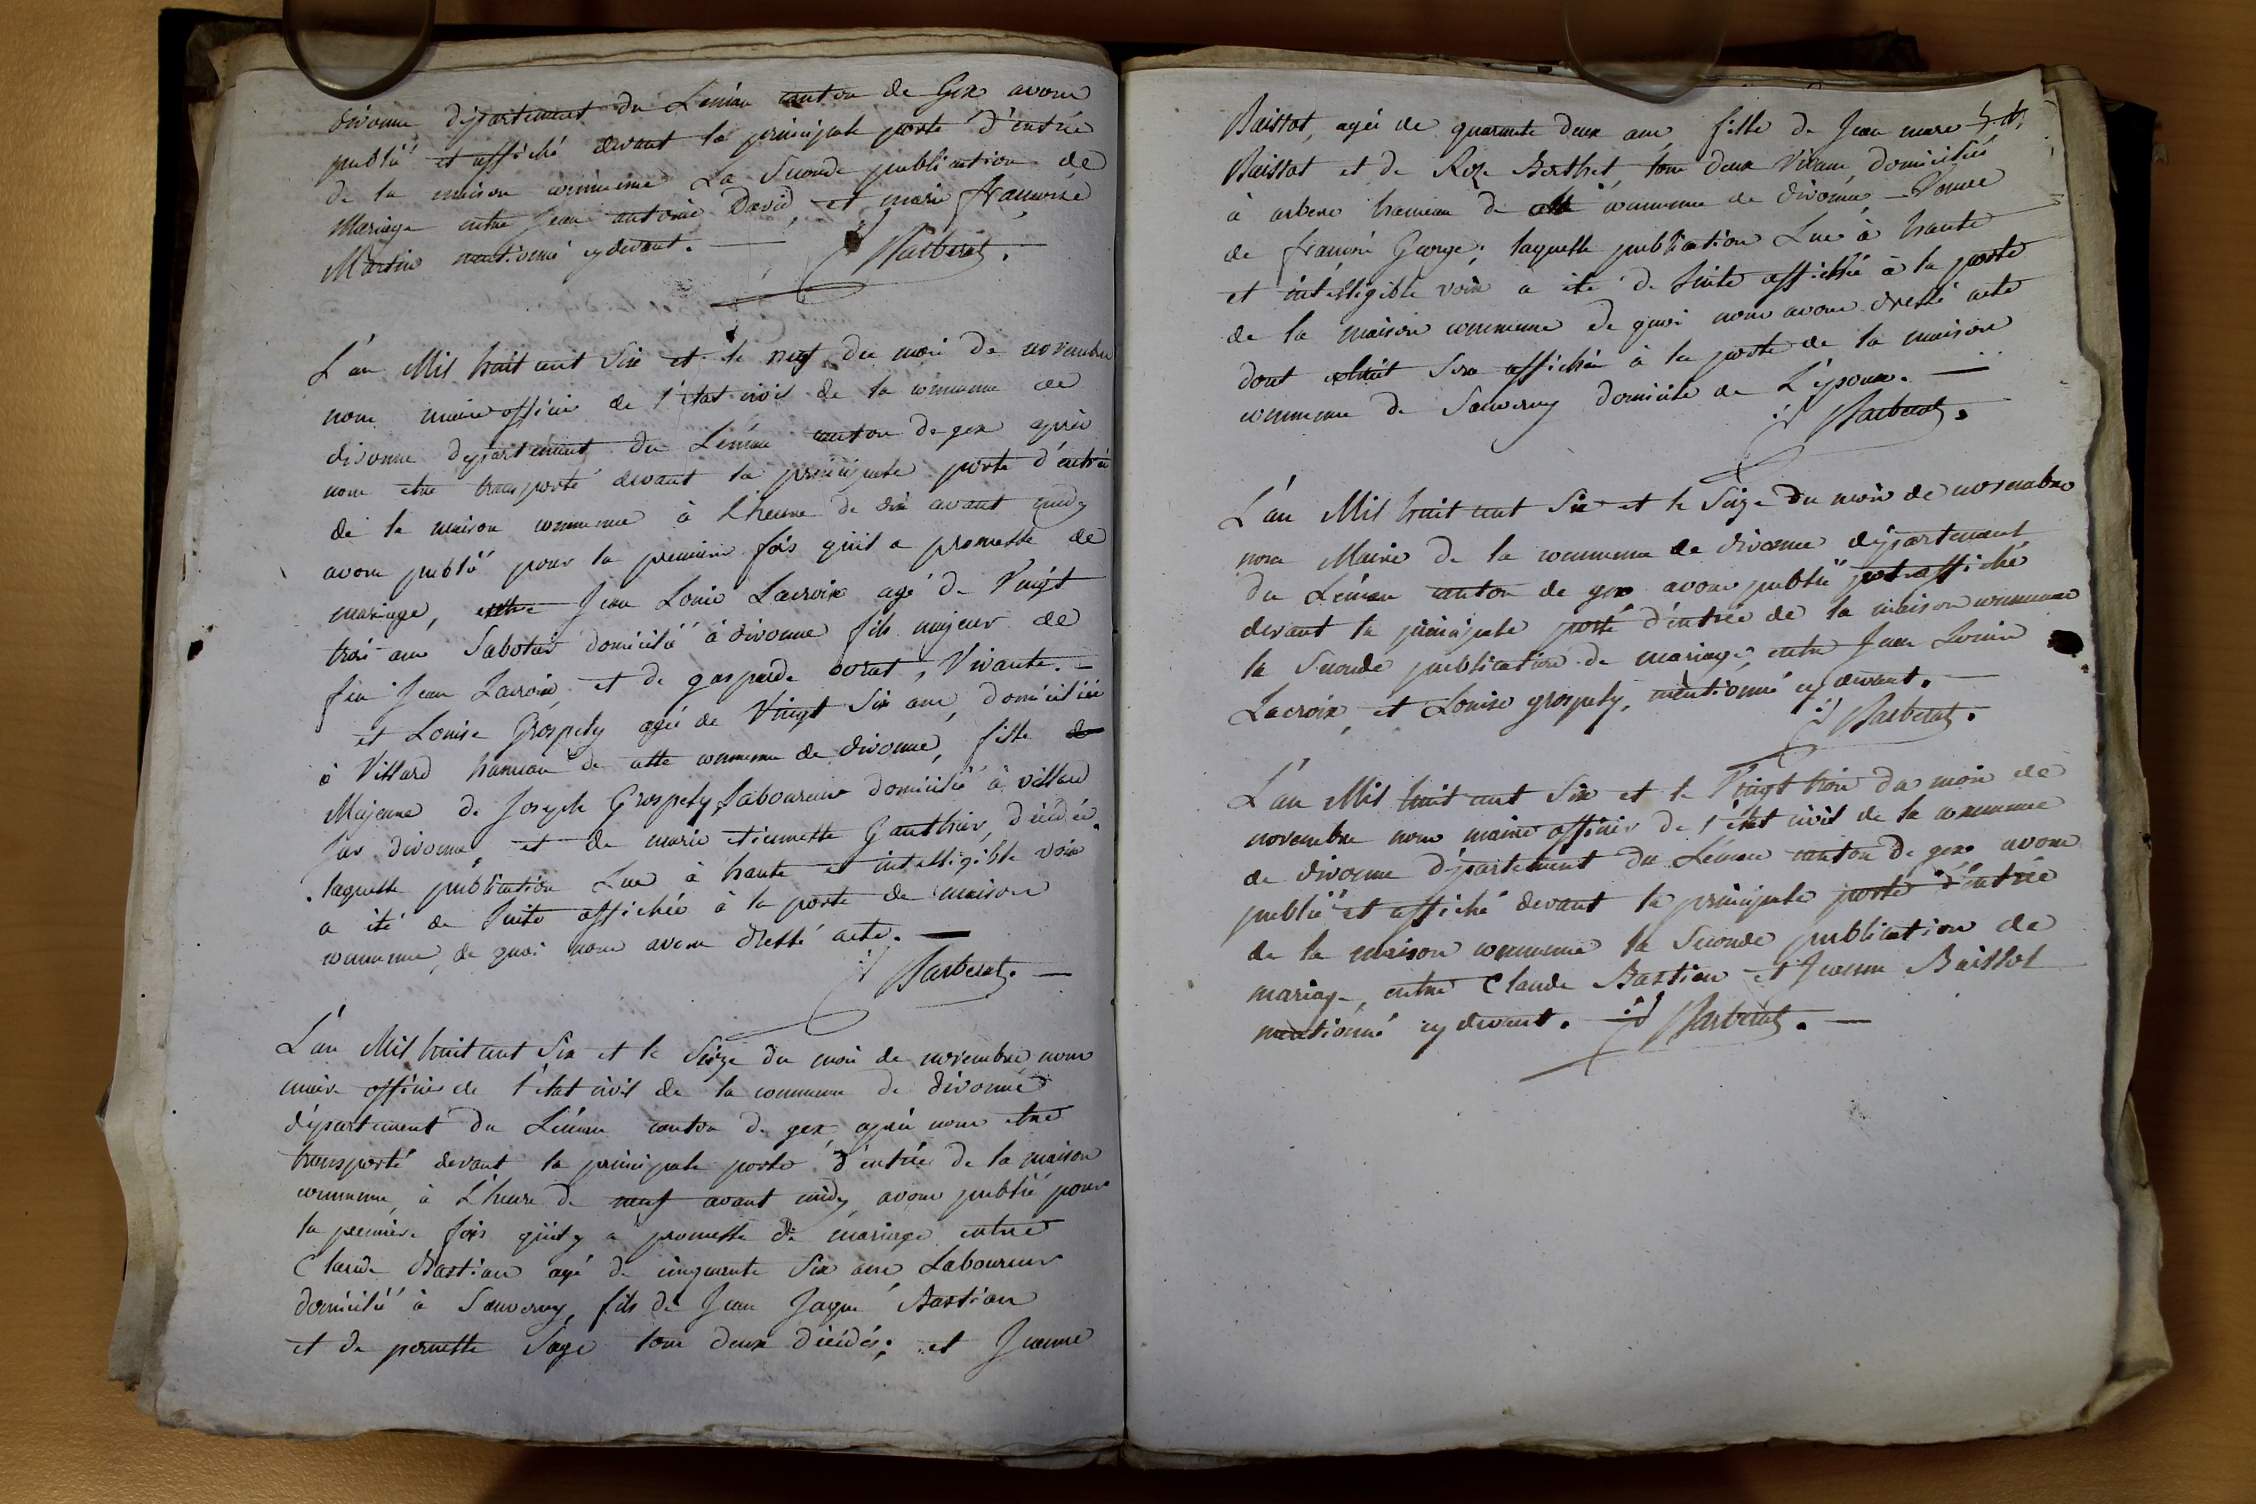 divonne département du Léman canton de Gex avons
publié et affiché devant la principale porte d'entrée
de la maison commune La Seconde publication de
Mariage entre Jean antoine David, et marie françoise
Martin mentionné cy devant. —
Barberat.
L'an Mil huit cent Six et le neuf du mois de novembre
nous maire officier de l'état civil de la commune de
divonne département du Léman canton de gex après
nous etre transporté devant la principale porte d'entrée
de la maison commune à l'heure de dix avant midy
avons publié pour la premiere fois qu'il a promesse de
mariage, entre Jean Louis Lacroix agé de Vingt
trois ans Sabotier domicilié à divonne fils majeur de
feu Jean Lacroix, et de gasparde vorat, Vivante. —
et Louise Grospety agée de Vingt Six ans, domiciliée
à Villard hameau de cette commune de divonne, fille
Majeure de Joseph Grospety, Laboureur domicilié à villard
Sur divonne, et de marie etiennette Gauthier, décédée.
laquelle publication Lue à haute et intelligible voix
a été de Suite affichée à la porte de maison
commune, de quoi nous avons dressé acte. —
Barberat. —
L'an Mil huit cent Six et le Seize du mois de novembre nous
maire officier de l'état civil de la commune de divonne
département du Léman canton de gex, après nous etre
transporté devant la principale porte d'entrée de la maison
commune, à L'heure de neuf avant midy, avons publié pour
la premiere fois qu'il y a promesse de mariage entre
Claude Bastian agé de cinquante Six ans Laboureur
domicilié à Sauverny, fils de Jean Jaque Bastian
et de pernette Sage tous deux décédés; et Jeanne
Baissot, agée de quarante deux ans, fille de Jean marc
Baissot et de Roze Berthet, tous deux Vivans, domiciliés
à arbere hameau de cette commune de divonne — Veuve
de françois George; laquelle publication Lue à haute
et intelligible voix a été de Suite affichée à la porte
de la maison commune de quoi nous avons dressé acte
dont extrait Sera affiché à la porte de la maison
commune de Sauverny domicile de L'époux. —
Barberat.
L'an Mil huit cent Six et le Seize du mois de novembre
nous Maire de la commune de divonne département
du Léman canton de gex avons publié et affiché
devant la principale porte d'entrée de la maison commune
la Seconde publication de mariage, entre Jean Louis
Lacroix, et Louise grospety, mentionné cy devant. —
Barberat.
L'an Mil huit cent Six et le Vingt trois du mois de
novembre nous maire officier de l'état civil de la commune
de divonne département du Léman canton de gex avons
publié et affiché devant la principale porte d'entrée
de la maison commune la Seconde publication de
mariage, entre Claude Bastian et Jeanne Baissot
mentionné cy devant. — Barberat. —